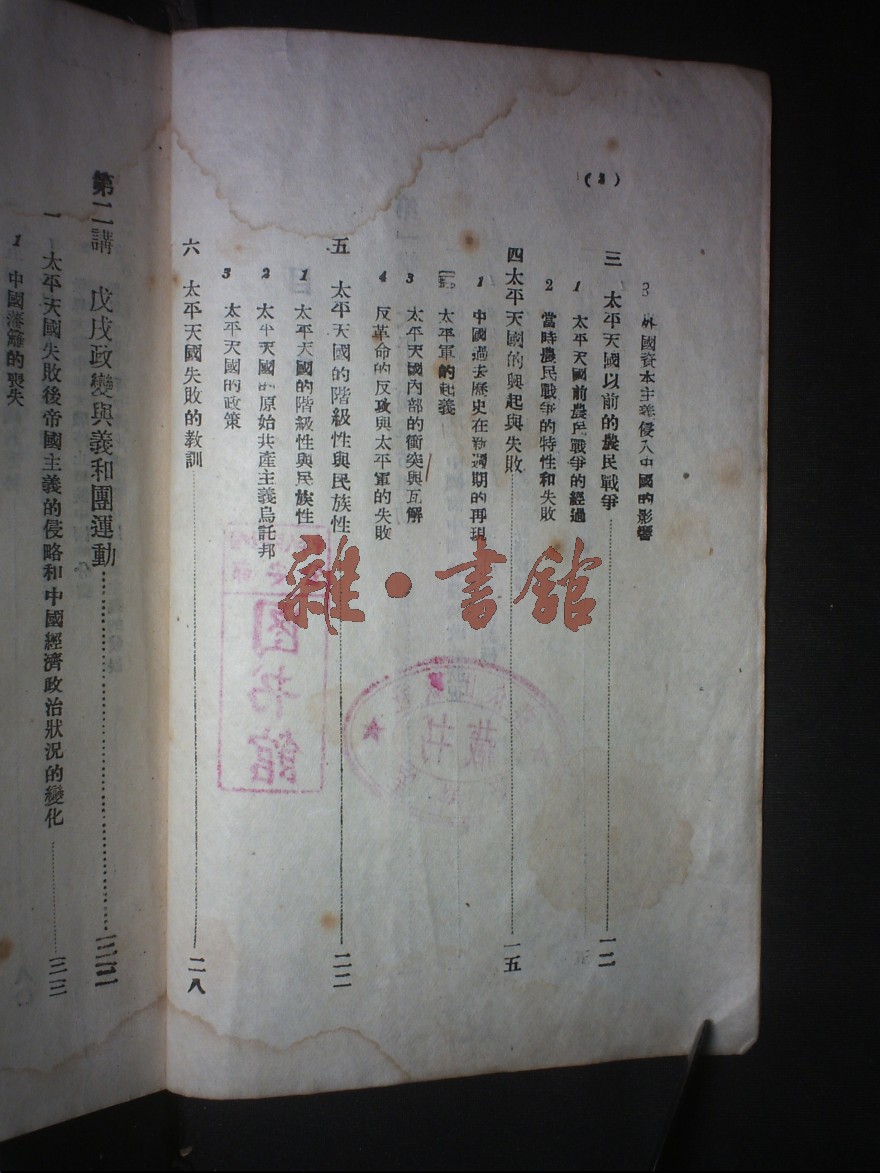 (2)
3 外國資本主義侵入中國的影響
三 太平天國以前的農民戰爭……一二
1 太平天國前農民戰爭的經過
2 當時農民戰爭的特性和失敗
四 太平天國的興起與失敗……一五
1 中國過去歷史在新週期的再現
太平軍的起義
3 太平天國內部的衝突與瓦解
4 反革命的反攻與太平軍的失敗
五 太平天國的階級性與民族性……二二
1 太平天國的階級性與民族性
2 太平天國的原始共產主義烏託邦
3 太平天國的政策
六 太平天國失敗的教訓……二八
第二講 戊戌政變與義和團運動……
一 太平天國失敗後帝國主義的侵略和中國經濟政治狀況的變化……三三
1 中國藩籬的喪失
雜·書館
图书馆
藏书